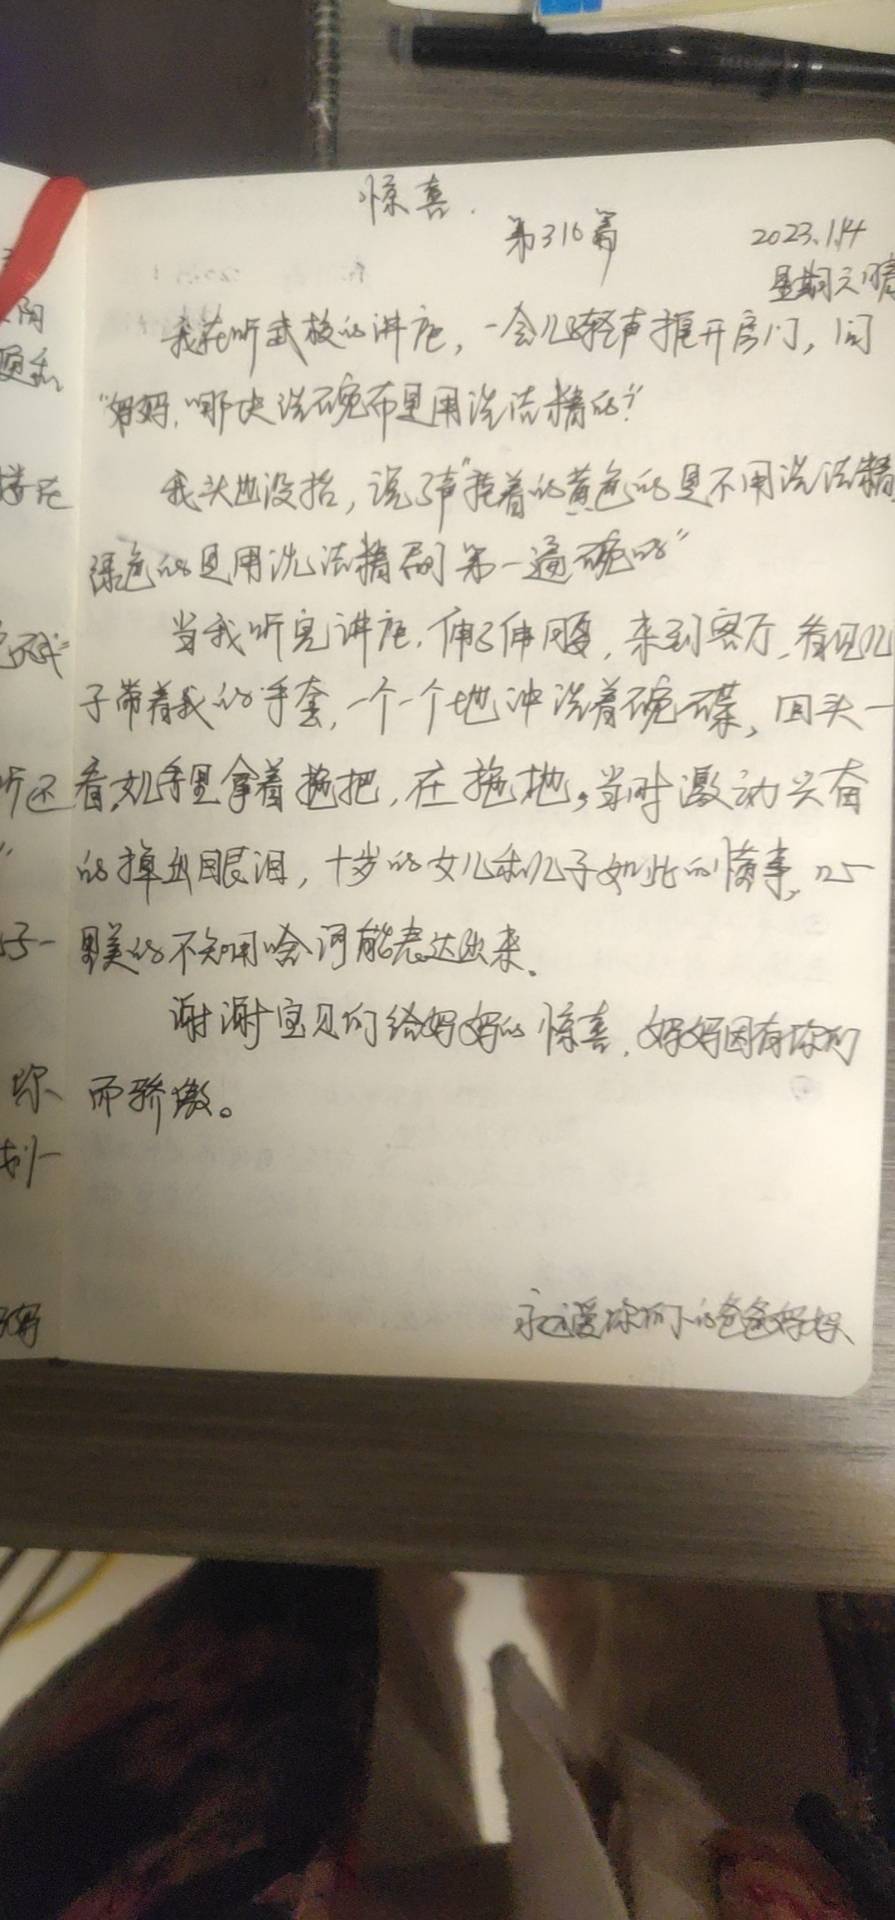 惊喜.
第316篇 2023.1.14
星期天 晴
我在听武校的讲座，一会儿轻声推开房门，问
“妈妈，哪块洗碗布是用洗洁精的？”
我头也没抬，说了声“挂着的黄色的是不用洗洁精
绿色的是用洗洁精刷第一遍碗的”
当我听完讲座，伸了伸腰，来到客厅，看见儿
子带着我的手套，一个一个地冲洗着碗碟，回头一
看，女儿手里拿着拖把，在拖地。当时激动兴奋
的掉出眼泪，十岁的女儿和儿子如此的懂事，心
里美的不知用啥词能表达出来.
谢谢宝贝们给妈妈的惊喜，妈妈因有你们
而骄傲。
永远爱你们的爸爸妈妈